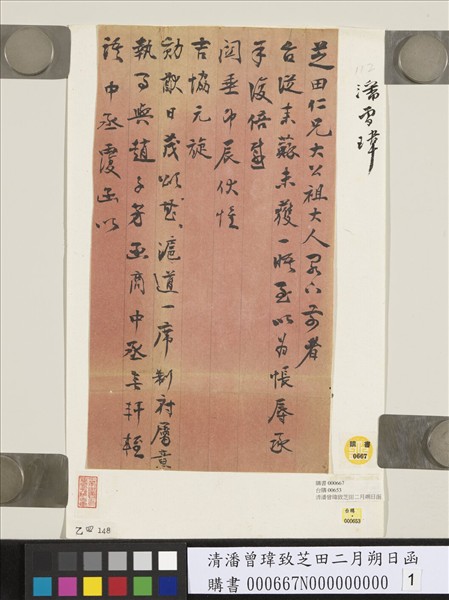 潘曾瑋
芝田仁兄大公祖大人閣下前者
台從來蘇未獲一晤至以為悵辱承
手復倍感
關垂即辰伏惟
吉協元旋
勛猷日茂以滬道一席制府屬意
執事與趙子芳函商中丞無軒輊
中丞覆函以
購書
0667
購書 000667
台購 00653
清潘曾瑋致芝田二月朔日函
台購
000653
乙四 148
清潘曾瑋致芝田二月朔日函
購書 000667N000000000
1